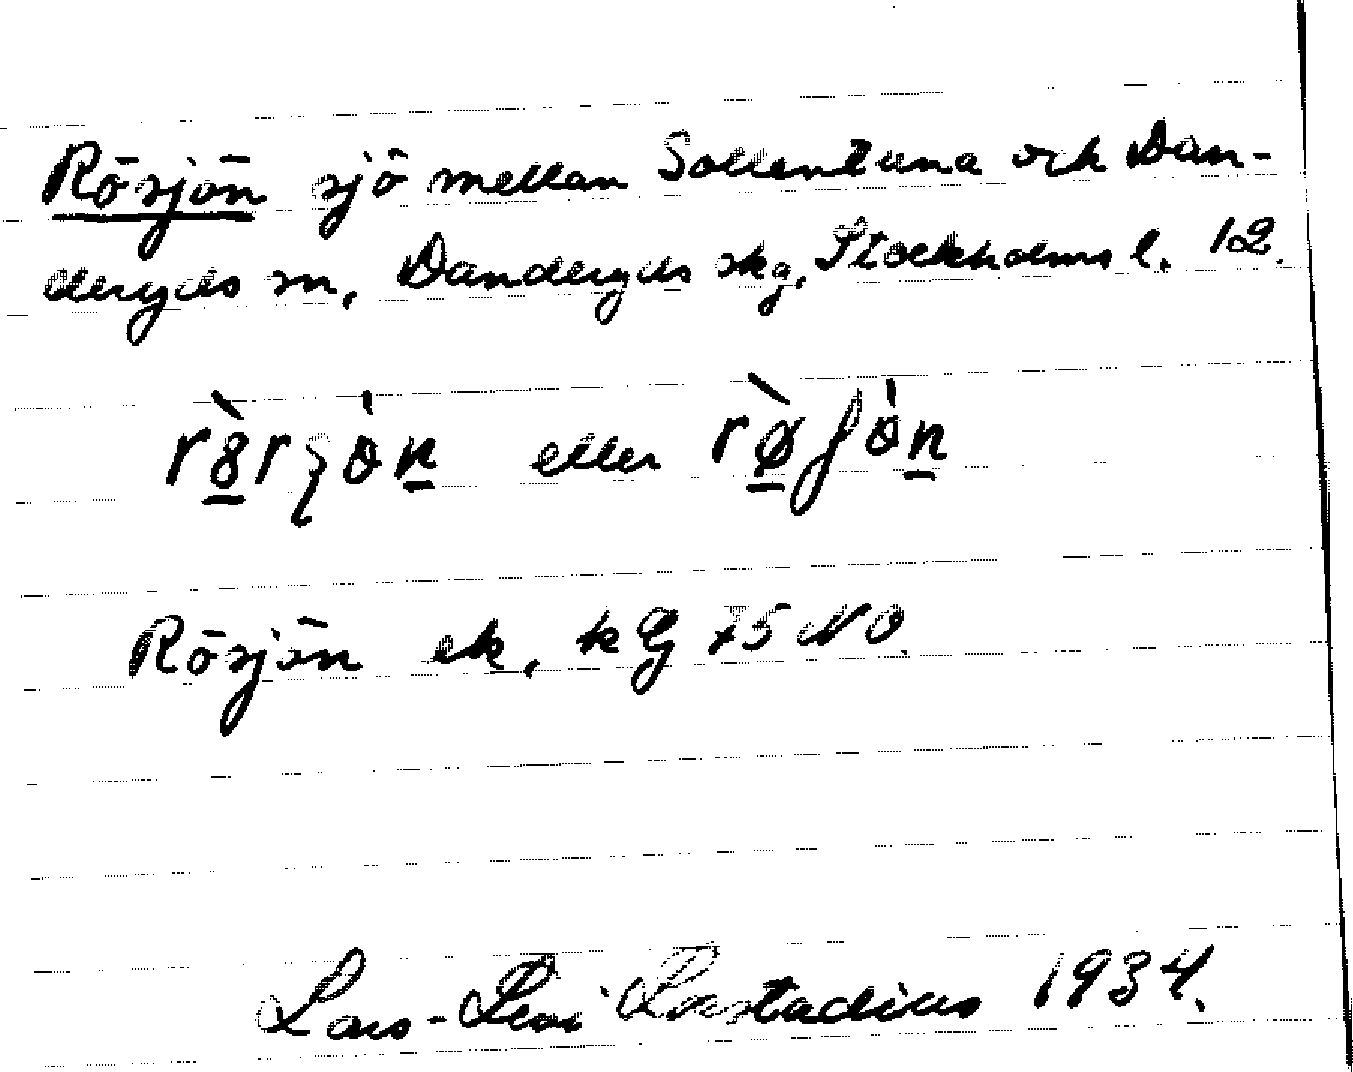 Rösjön sjö mellan Sollentuna och Dan-
deryds sn, Danderyds skg, Stockholms l. 12.
eller
Rösjön ek. kG 75 NO.
Lars-Levi Læstadius 1934.